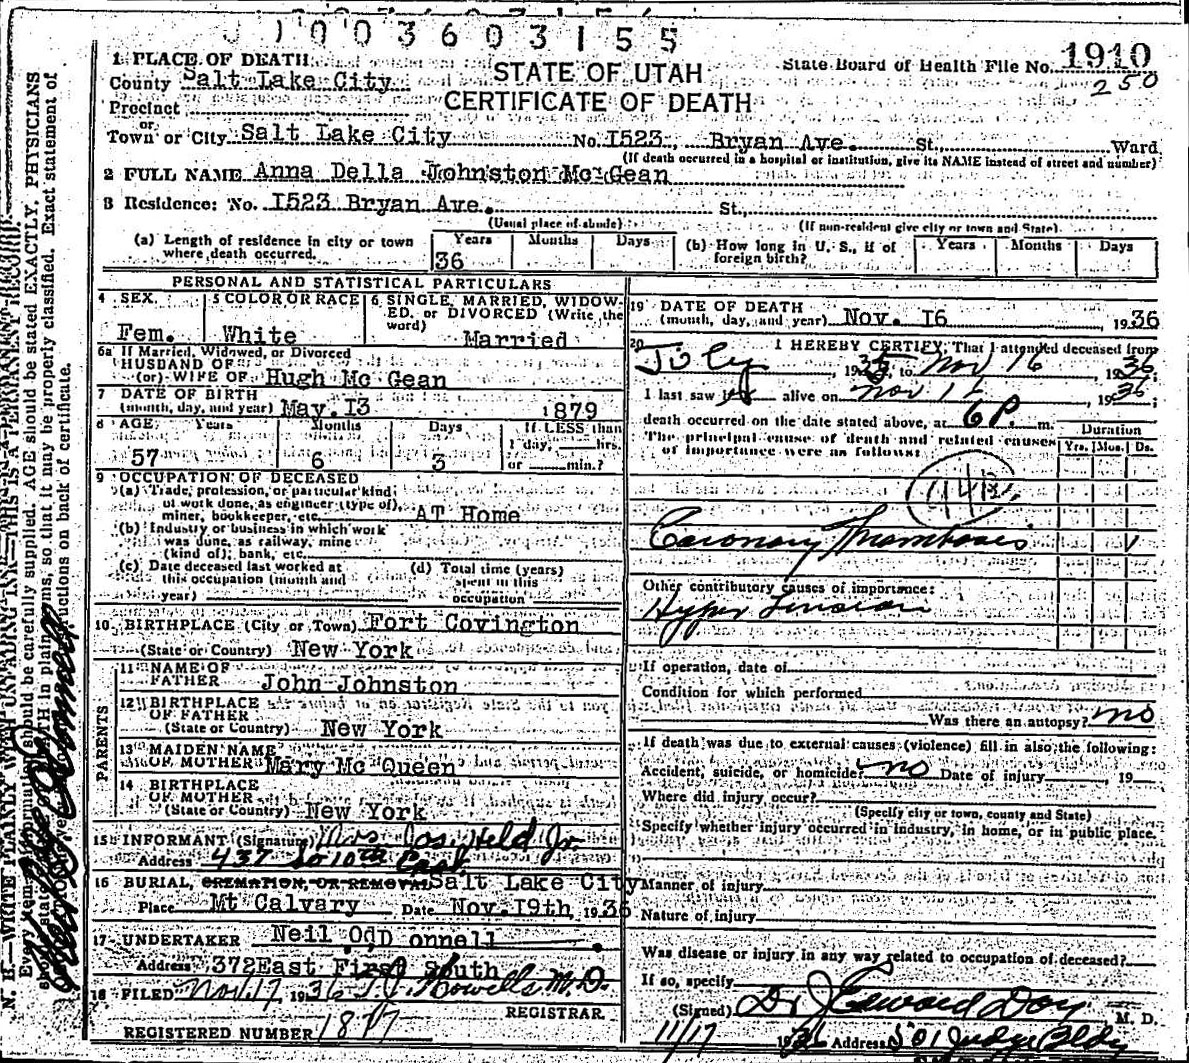 1003603155
STATE OF UTAH
CERTIFICATE OF DEATH
State Board of Health File No. 1910
250
1 PLACE OF DEATH
County Salt Lake City
Precinct
or
Town or City Salt Lake City No. I523, Bryan Ave. St., Ward
(If death occurred in a hospital or institution, give its NAME instead of street and number)
2 FULL NAME Anna Della Johnston Mc Gean
3 Residence: No. I523 Bryan Ave. St.,
(Usual place of abode) (If non-resident give city or town and State)
(a) Length of residence in city or town where death occurred. Years 36 Months Days
(b) How long in U. S., if of foreign birth? Years Months Days
PERSONAL AND STATISTICAL PARTICULARS
4 SEX Fem.
5 COLOR OR RACE White
6 SINGLE, MARRIED, WIDOWED, or DIVORCED (Write the word) Married
6a If Married, Widowed, or Divorced
HUSBAND OF
(or) WIFE OF Hugh Mc Gean
7 DATE OF BIRTH
(month, day, and year) May. I3 1879
8 AGE Years 57 Months 6 Days 3
If LESS than
1 day, hrs.
or min.?
9 OCCUPATION OF DECEASED
(a) Trade, profession, or particular kind
of work done, as engineer (type of),
miner, bookkeeper, etc. AT Home
(b) Industry or business in which work
was done, as railway, mine
(kind of); bank, etc.
(c) Date deceased last worked at
this occupation (month and
year)
(d) Total time (years)
spent in this
occupation
10 BIRTHPLACE (City or Town) Fort Covington
(State or Country) New York
PARENTS
11 NAME OF
FATHER John Johnston
12 BIRTHPLACE
OF FATHER
(State or Country) New York
13 MAIDEN NAME
OF MOTHER Mary Mc Queen
14 BIRTHPLACE
OF MOTHER
(State or Country) New York
15 INFORMANT (Signature) Mrs Jos Held Jr.
Address 437 So 10th East
16 BURIAL, CREMATION, OR REMOVAL Salt Lake City
Place Mt Calvary Date Nov. I9th, 1936
17 UNDERTAKER Neil O'Donnell
Address 372 East First South
18 FILED Nov. 17 1936 Howells M.D.
REGISTRAR.
REGISTERED NUMBER 1817
19 DATE OF DEATH
(month, day, and year) Nov. I6 , 1936
20 I HEREBY CERTIFY, That I attended deceased from
July , 1935, to Nov 16 , 1936
I last saw alive on Nov 1 , 1936;
death occurred on the date stated above, at 6 P. m.
The principal cause of death and related causes
of importance were as follows:
Duration
Yrs. Mos. Ds.
Coronary Thrombosis
Other contributory causes of importance:
Hyper Tension
If operation, date of
Condition for which performed
Was there an autopsy? no
If death was due to external causes (violence) fill in also the following:
Accident, suicide, or homicide? no Date of injury , 19
Where did injury occur?
(Specify city or town, county and State)
Specify whether injury occurred in industry, in home, or in public place.
Manner of injury
Nature of injury
Was disease or injury in any way related to occupation of deceased?
If so, specify
(Signed) Dr J Edward Day M. D.
11/17 1936 Address 501 Judge Bldg
N. B.—WRITE PLAINLY WITH UNFADING INK—THIS IS A PERMANENT RECORD.
AGE should be stated EXACTLY, PHYSICIANS
so that it may be properly classified. Exact statement of
on back of certificate.